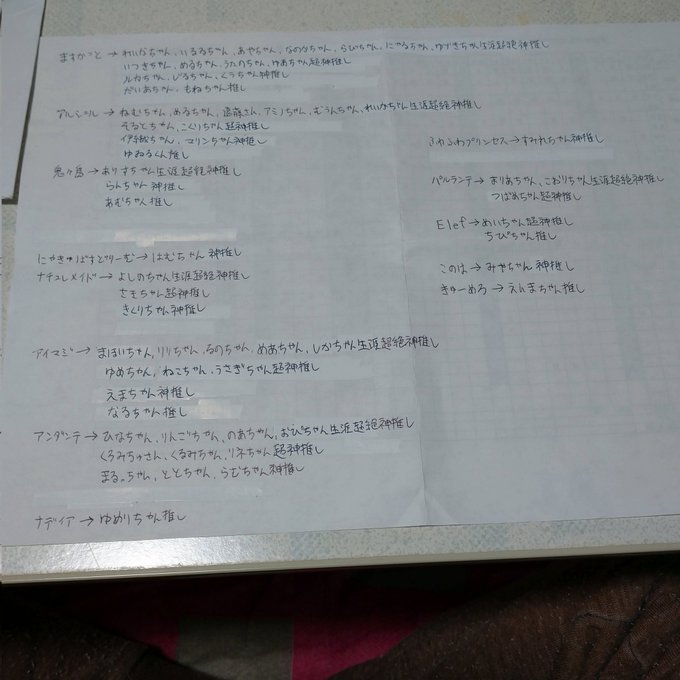 ますかっと→れいかちゃん、いるるちゃん、あやちゃん、なのかちゃん、らぴちゃん、にゃるちゃん、ゆづきちゃん生涯超絶神推し
いつきちゃん、めるちゃん、うたのちゃん、ゆあちゃん超神推し
ルカちゃん、じるちゃん、くうちゃん神推し
だいあちゃん、もねちゃん推し
アルシエル→ねむちゃん、めるちゃん、遠藤さん、アミノちゃん、むうんちゃん、れいかちゃん生涯超絶神推し
そるとちゃん、こくりちゃん超神推し
伊織ちゃん、マリンちゃん神推し
ゆねるくん推し
鬼ヶ島→ありすちゃん生涯超絶神推し
らんちゃん神推し
あむちゃん推し
にゃきゅばすどりーむ→はむちゃん神推し
ナチュレメイド→よしのちゃん生涯超絶神推し
さきちゃん超神推し
きくりちゃん神推し
アイマジ→まほいちゃん、リリちゃん、るのちゃん、めあちゃん、しかちゃん生涯超絶神推し
ゆめちゃん、ねこちゃん、うさぎちゃん超神推し
えまちゃん神推し
なるちゃん推し
アンダンテ→ひなちゃん、りんごちゃん、のあちゃん、おびちゃん生涯超絶神推し
くろみちゅさん、くるみちゃん、リネちゃん超神推し
まるっちゃん、ととちゃん、らむちゃん神推し
ナディア→ゆめりちゃん推し
ふわふわプリンセス→すみれちゃん神推し
パルランテ→まりあちゃん、こおりちゃん生涯超絶神推し
つばめちゃん超神推し
Elef→めいちゃん超神推し
ちびちゃん推し
このは→みやちゃん神推し
きゅーめろ→えんまちゃん推し